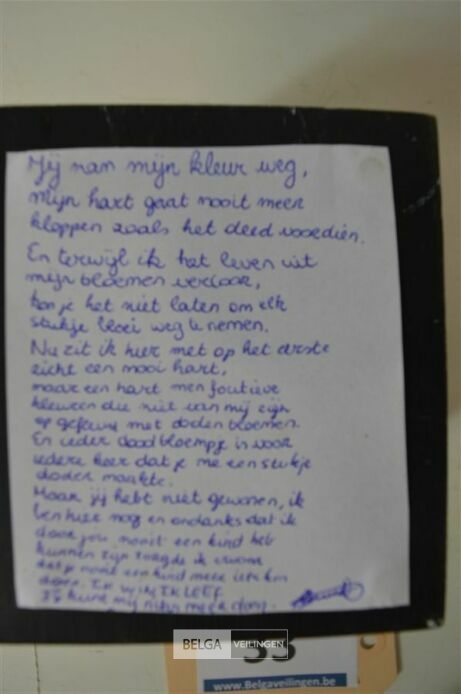 Hij nam mijn kleur weg,
mijn hart gaat nooit meer
kloppen zoals het deed voordien.
En terwijl ik het leven uit
mijn bloemen verloor,
kon je het niet laten om elk
stukje bloei weg te nemen.
Nu zit ik hier met op het eerste
zicht een mooi hart,
maar een hart men foutieve
kleuren die niet van mij zijn
op gefleurd met doden bloemen.
En ieder dood bloempje is voor
iedere keer dat je me een stukje
doder maakte.
Maar jij hebt niet gewonnen, ik
ben hier nog en ondanks dat ik
door jou nooit een kind heb
kunnen zijn
nooit een kind meer iets
doen. IK WIN, IK LEEF
Jij kunt mij niets meer doen.
BELGA VEILINGEN
33
www.Belgaveilingen.be